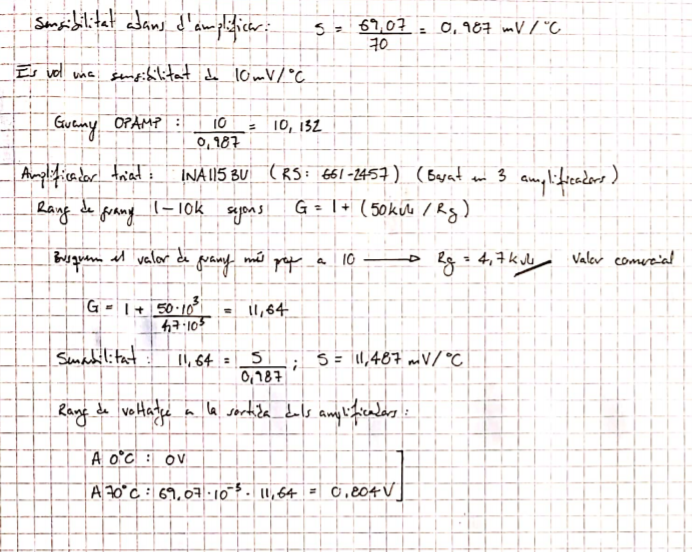 Sensibilitat abans d'amplificar: S = 69,07 / 70 = 0,987 mV/°C
Es vol una sensibilitat de 10mV/°C
Guany OPAMP : 10 / 0,987 = 10,132
Amplificador triat: INA115BU (RS: 661-2457) (Basat en 3 amplificadors)
Rang de guany 1-10k segons G = 1 + (50kΩ / Rg)
Busquem el valor de guany més prop a 10 → Rg = 4,7kΩ Valor comercial
G = 1 + 50·10³ / 4,7·10³ = 11,64
Sensibilitat: 11,64 = S / 0,987 ; S = 11,487 mV/°C
Rang de voltatge a la sortida dels amplificadors:
A 0°C : 0V
A 70°C : 69,07·10⁻³ · 11,64 = 0,804V